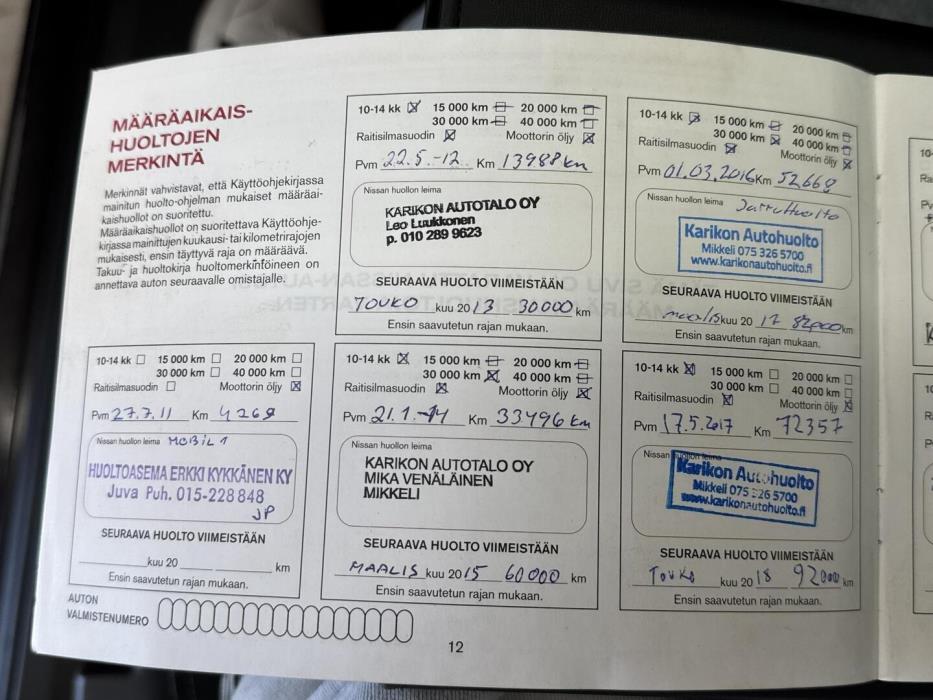 MÄÄRÄAIKAIS-
HUOLTOJEN
MERKINTÄ
Merkinnät vahvistavat, että Käyttöohjekirjassa
mainitun huolto-ohjelman mukaiset määräai-
kaishuollot on suoritettu.
Määräaikaishuollot on suoritettava Käyttöohje-
kirjassa mainittujen kuukausi- tai kilometrirajojen
mukaisesti, ensin täyttyvä raja on määräävä.
Takuu- ja huoltokirja huoltomerkintöineen on
annettava auton seuraavalle omistajalle.
10-14 kk 15 000 km 20 000 km
30 000 km 40 000 km
Raitisilmasuodin Moottorin öljy
Pvm 27.7.11 Km 4268
Nissan huollon leima MOBIL 1
HUOLTOASEMA ERKKI KYKKÄNEN KY
Juva Puh. 015-228 848
JP
SEURAAVA HUOLTO VIIMEISTÄÄN
kuu 20 km
Ensin saavutetun rajan mukaan.
10-14 kk 15 000 km 20 000 km
30 000 km 40 000 km
Raitisilmasuodin Moottorin öljy
Pvm 22.5.-12 Km 13988 km
Nissan huollon leima
KARIKON AUTOTALO OY
Leo Luukkonen
p. 010 289 9623
SEURAAVA HUOLTO VIIMEISTÄÄN
TOUKO kuu 2013 30000 km
Ensin saavutetun rajan mukaan.
10-14 kk 15 000 km 20 000 km
30 000 km 40 000 km
Raitisilmasuodin Moottorin öljy
Pvm 21.1.-14 Km 33496 km
Nissan huollon leima
KARIKON AUTOTALO OY
MIKA VENÄLÄINEN
MIKKELI
SEURAAVA HUOLTO VIIMEISTÄÄN
MAALIS kuu 2015 60000 km
Ensin saavutetun rajan mukaan.
10-14 kk 15 000 km 20 000 km
30 000 km 40 000 km
Raitisilmasuodin Moottorin öljy
Pvm 01.03.2016 Km 52668
Nissan huollon leima Jarruhuolto
Karikon Autohuolto
Mikkeli 075 326 5700
www.karikonautohuolto.fi
SEURAAVA HUOLTO VIIMEISTÄÄN
maalis kuu 20 17 82000 km
Ensin saavutetun rajan mukaan.
10-14 kk 15 000 km 20 000 km
30 000 km 40 000 km
Raitisilmasuodin Moottorin öljy
Pvm 17.5.2017 Km 72357
Nissan huollon leima
Karikon Autohuolto
Mikkeli 075 326 5700
www.karikonautohuolto.fi
SEURAAVA HUOLTO VIIMEISTÄÄN
Touko kuu 20 18 92000 km
Ensin saavutetun rajan mukaan.
AUTON
VALMISTENUMERO
12